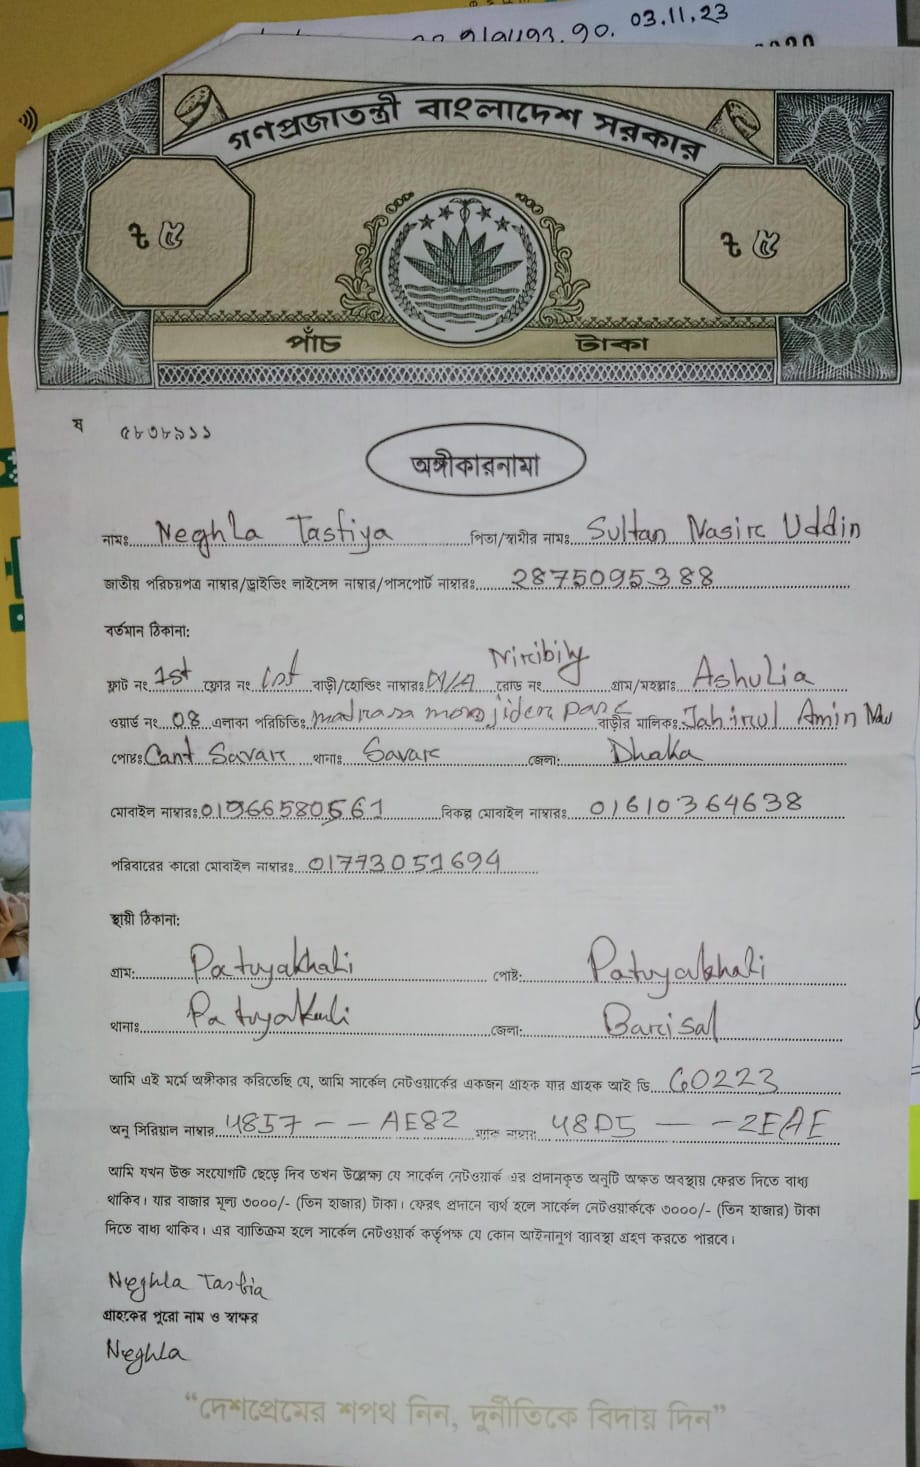 03.11.23
গণপ্রজাতন্ত্রী বাংলাদেশ সরকার
৳ ৫ ৳ ৫
পাঁচ টাকা
ষ ৫৮৩৮৯১১
অঙ্গীকারনামা
নামঃ Neghla Tasfiya পিতা/স্বামীর নামঃ Sultan Nasir Uddin
জাতীয় পরিচয়পত্র নাম্বার/ড্রাইভিং লাইসেন্স নাম্বার/পাসপোর্ট নাম্বারঃ 2875095388
বর্তমান ঠিকানা:
ফ্লাট নং 1st ফ্লোর নং 1st বাড়ী/হোল্ডিং নাম্বারঃ N/A রোড নং Niribily গ্রাম/মহল্লাঃ Ashulia
ওয়ার্ড নং 08 এলাকা পরিচিতিঃ madrasa mosjider বাড়ীর মালিকঃ Jahirul Amin
পোষ্টঃ Cant Savar থানাঃ Savar জেলা: Dhaka
মোবাইল নাম্বারঃ 01966580561 বিকল্প মোবাইল নাম্বারঃ 01610364638
পরিবারের কারো মোবাইল নাম্বারঃ 01773051694
স্থায়ী ঠিকানা:
গ্রাম: Patuyakhali পোষ্ট: Patuyakhali
থানাঃ Patuyakhali জেলা: Barisal
আমি এই মর্মে অঙ্গীকার করিতেছি যে, আমি সার্কেল নেটওয়ার্কের একজন গ্রাহক যার গ্রাহক আই ডি 60223
অনু সিরিয়াল নাম্বার 4857 -- AE82 ম্যাক নাম্বার: 48D5 -- 2EAE
আমি যখন উক্ত সংযোগটি ছেড়ে দিব তখন উল্লেক্ষ্য যে সার্কেল নেটওয়ার্ক এর প্রদানকৃত অনুটি অক্ষত অবস্থায় ফেরত দিতে বাধ্য
থাকিব। যার বাজার মূল্য ৩০০০/- (তিন হাজার) টাকা। ফেরৎ প্রদানে ব্যর্থ হলে সার্কেল নেটওয়ার্ককে ৩০০০/- (তিন হাজার) টাকা
দিতে বাধ্য থাকিব। এর ব্যতিক্রম হলে সার্কেল নেটওয়ার্ক কর্তৃপক্ষ যে কোন আইনানুগ ব্যাবস্থা গ্রহণ করতে পারবে।
Neghla Tasfia
গ্রাহকের পুরো নাম ও স্বাক্ষর
Neghla
“দেশপ্রেমের শপথ নিন, দুর্নীতিকে বিদায় দিন”